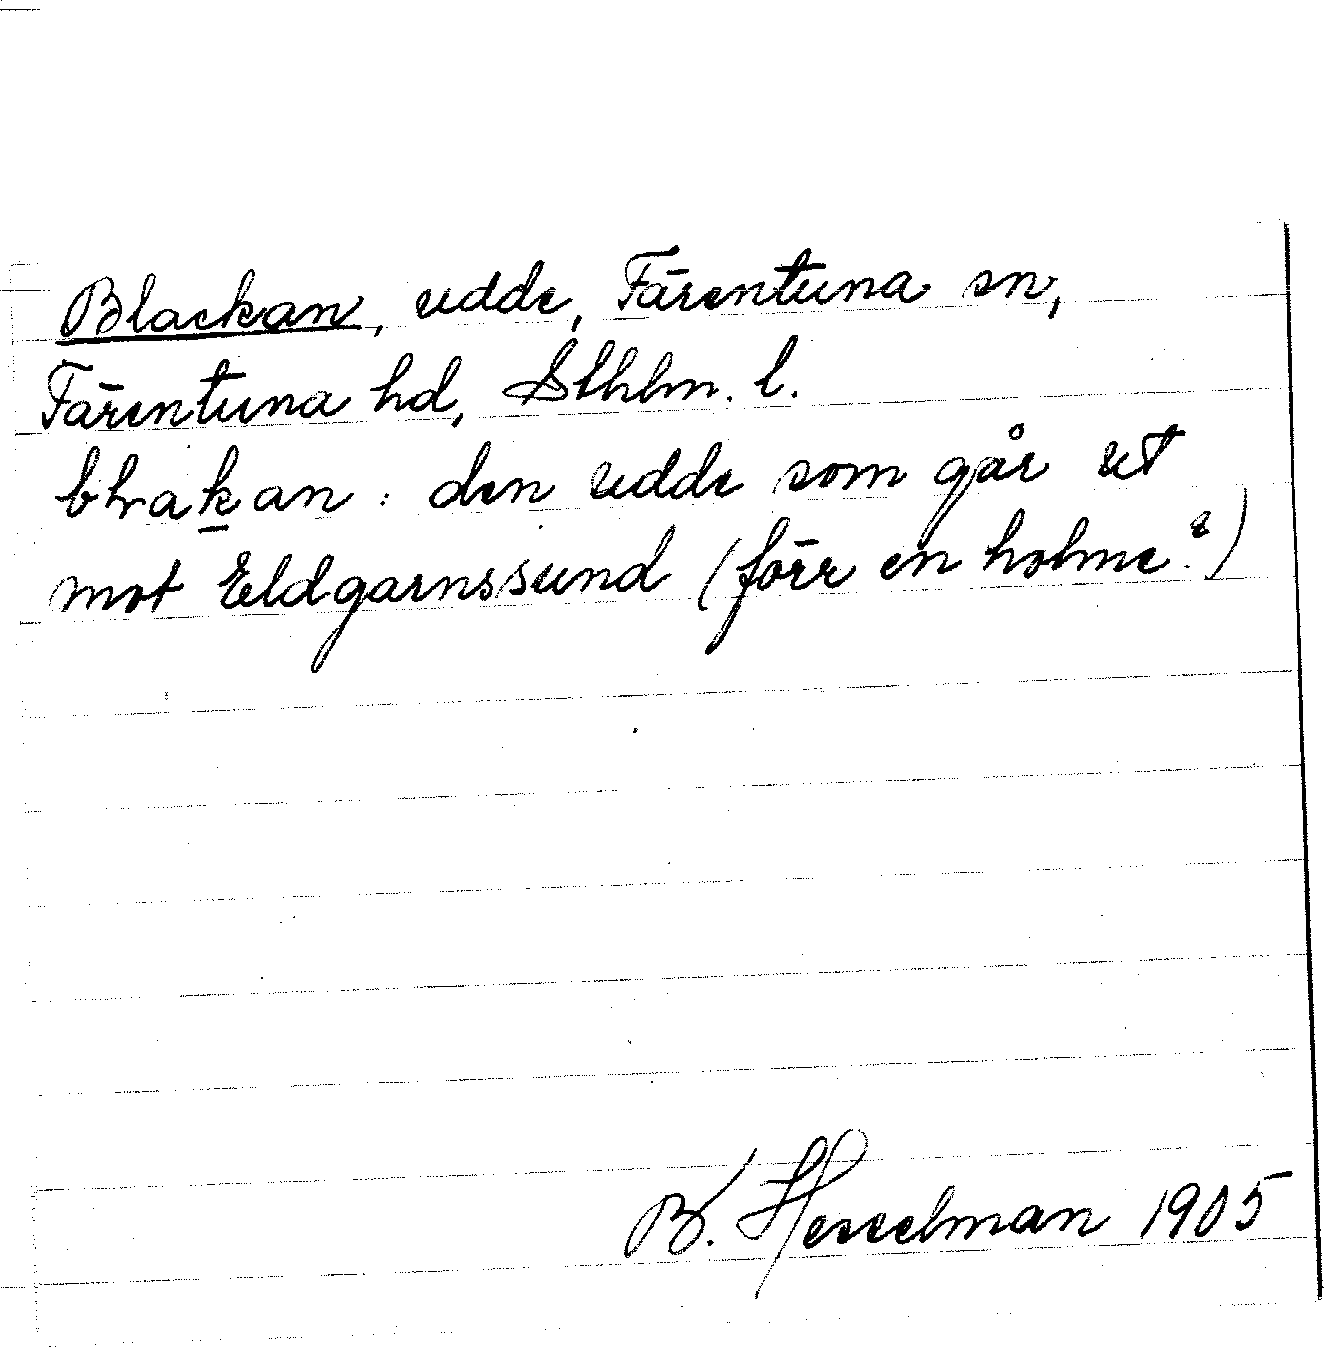 Blackan, udde, Färentuna sn,
Färentuna hd, Sthlm. l.
blrakan : den udde som går ut
mot Eldgarnssund (förr en holme?)
B. Hesselman 1905